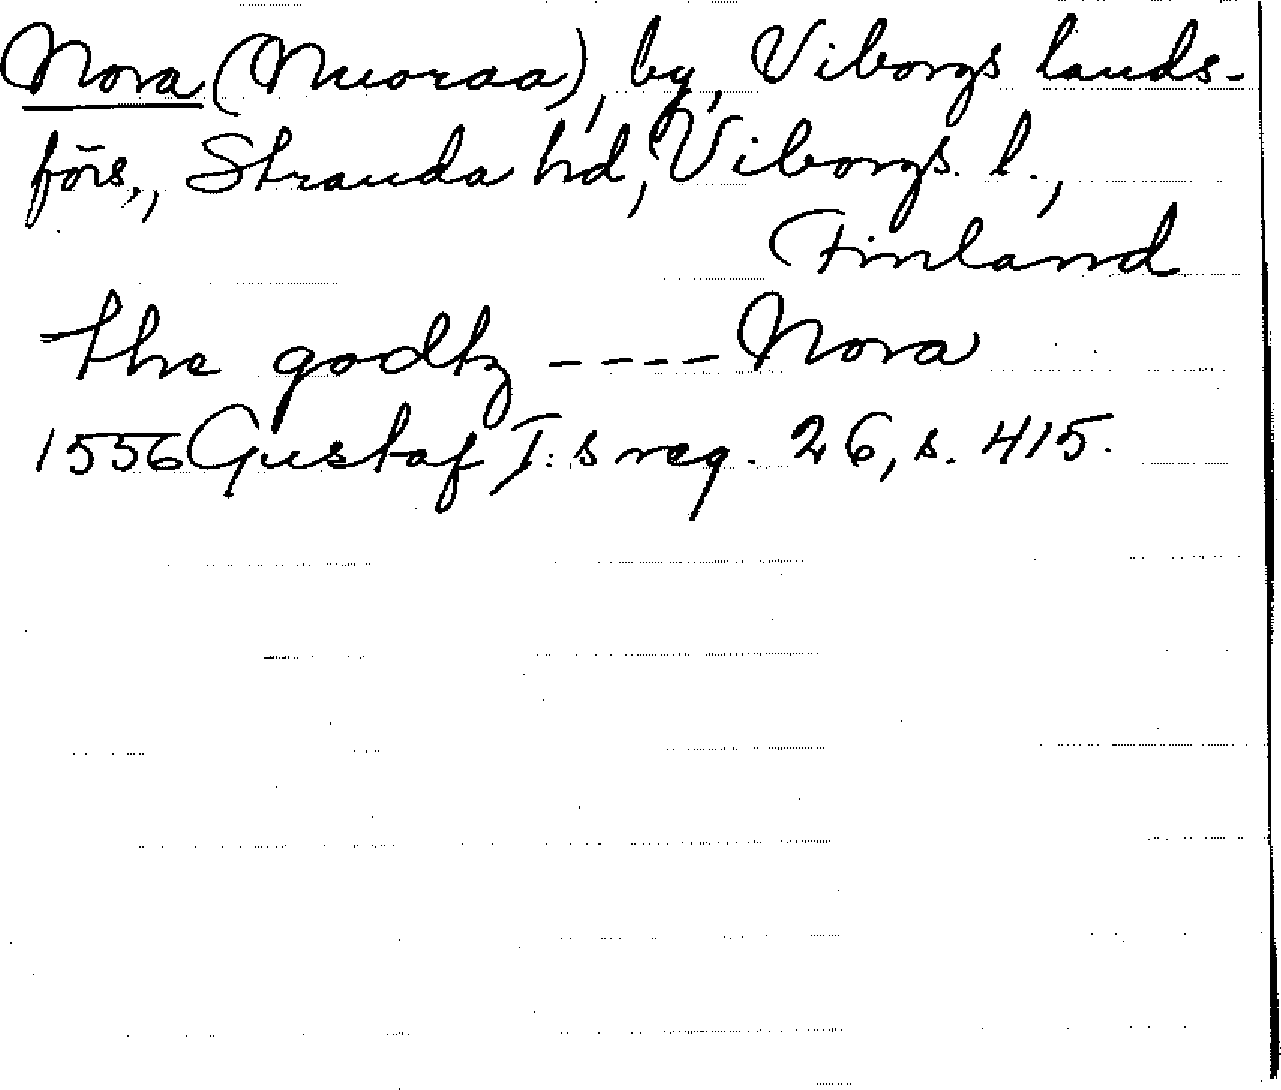 Nora (Nuoraa), by, Viborgs lands-
förs., Stranda hd, Viborgs. l.,
Finland
the godtz ---- Nora
1556 Gustaf I:s reg. 26, s. 415.